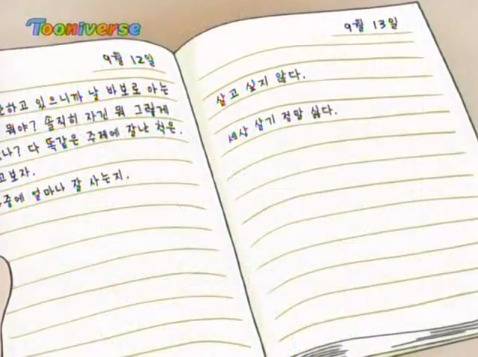 Tooniverse
9월 12일
하고 있으니까 날 바보로 아는
뭐야? 솔직히 자긴 뭐 그렇게
나? 다 똑같은 주제에 잘난 척은.
고보자.
중에 얼마나 잘 사는지.
9월 13일
살고 싶지 않다.
세상 살기 정말 싫다.